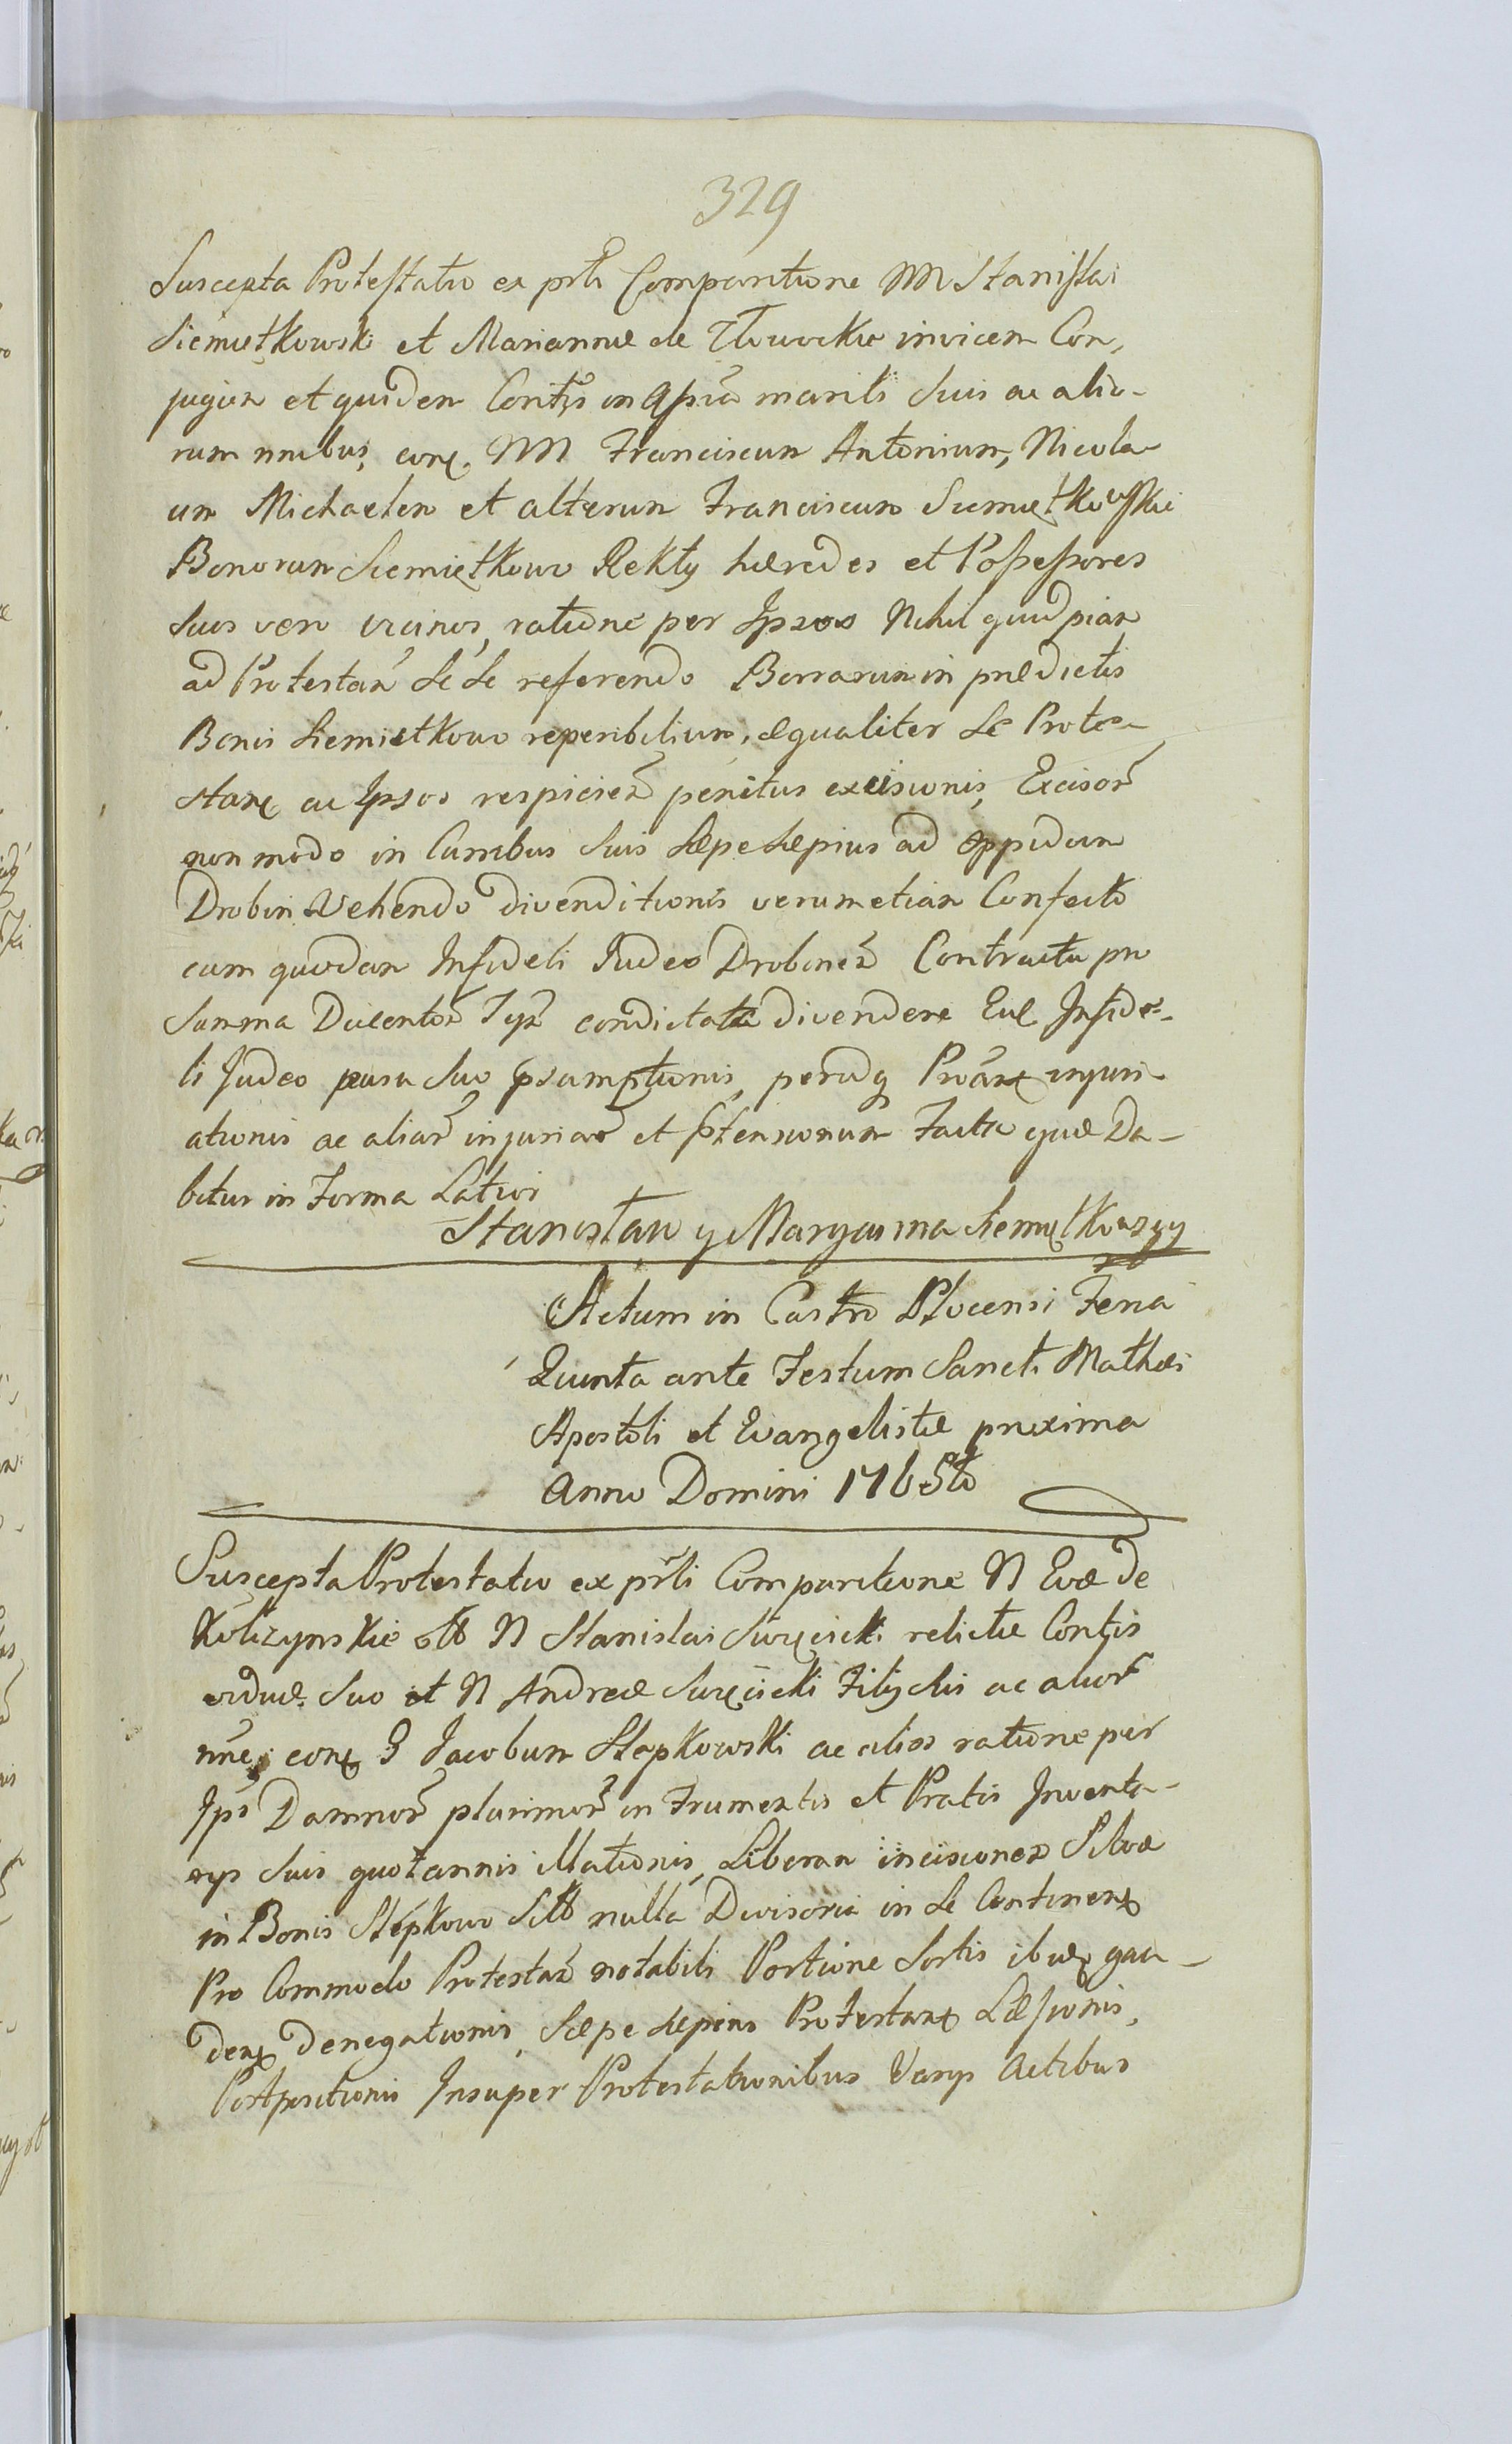 329
Suscepta Protestatio ex prti Comparitione NN Stanislai
Siemiętkowski et Mariannæ de Tłowockie invicem Con,
jugum et quidem Contis in aspia mariti sui ac alio-
rum nnibus, conę. NN Franciscum Antonium, Nicola
um Michaelem et alterum Franciscum Siemiętkowskie
Bonorum Siemiętkowo Rekty hæredes et Possessores
suos vero vicinos, ratione per Ipsos Nihil quidpiam
ad Protestan se se referendo Borrarum in prædictis
Bonis Siemietkowo reperibilium, æqualiter se Protes-
tanę ac Ipsos respicien penitus excisionis, Excisor
non modo in Curribus suis sæpe sæpius ad oppidum
Drobin Vehendo divenditionis verum etiam Confecto
cum quodam Infideli Judeo Drobinen Contractu pro
Summa Ducentor Typ condictata divendere Eidę Infide-
li Judeo ausu suo præsumptionis, peridq injuri-
ationis ac aliar injuriar et prtensionum Facta quæ Da-
bitur in Forma Latiori
Stanisław y Maryanna Siemiętkowscy
Actum in Castro Plocensi Feria
Quinta ante Festum Sancti Mathæi
Apostoli et Evangelistæ proxima
Anno Domini 1765to
Suscepta Protestatio ex prti Comparitione N Evæ de
Kolczynskie olt N Stanislai Suręcicki relictæ Contis
viduæ. Suo et N Andreæ Suręcicki Filij sui ac alior
nne, conę G Jacobum Stępkowski ac alios ratione per
Ips Damnor plurimor in Frumentis et Pratis Inventa-
rijs suis quotannis illationis, Liberam incisionem Silvæ
in Bonis Stępkowo Sitt nulla Divisoria in se Continenę
Pro Commodo Protestan notabili Portione Sortis ibidę gau-
denę Denegationis, Sæpe sæpius Protestanę Læsionis,
Postpositionis Insuper Protestationibus Varijs Actibus